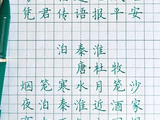 凭君传语报平安
泊秦淮
唐·杜牧
烟笼寒水月笼沙
夜泊秦淮近酒家